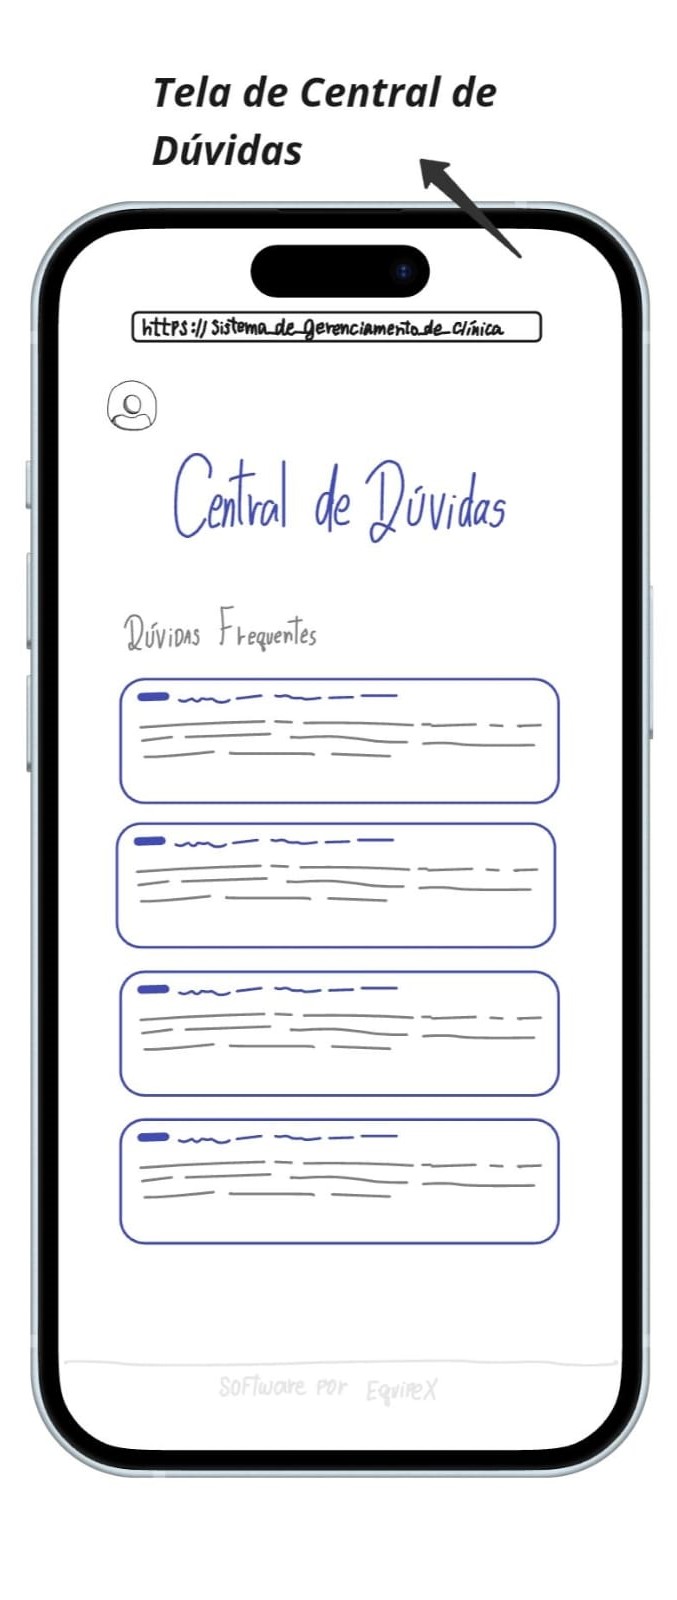 Tela de Central de
Dúvidas
https://sistema_de_gerenciamento_de_clínica
Central de Dúvidas
Dúvidas Frequentes
Software por EquipeX